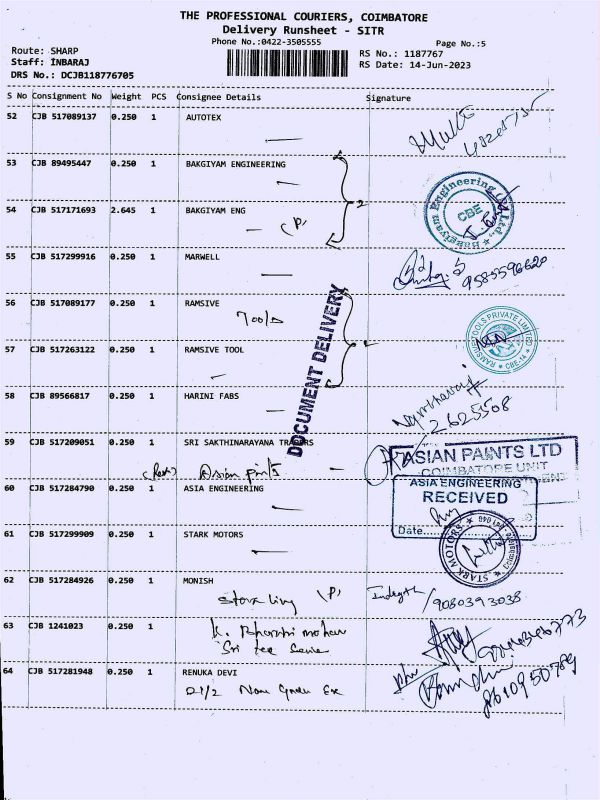 THE PROFESSIONAL COURIERS, COIMBATORE
Delivery Runsheet - SITR
Phone No.:0422-3505555
Page No.:5
Route: SHARP
Staff: INBARAJ
DRS No.: DCJB118776705
RS No.: 1187767
RS Date: 14-Jun-2023
S No Consignment No Weight PCS Consignee Details Signature
52 CJB 517089137 0.250 1 AUTOTEX
53 CJB 89495447 0.250 1 BAKGIYAM ENGINEERING
2
54 CJB 517171693 2.645 1 BAKGIYAM ENG
(P)
Bakgiyam Engineering (P) Ltd.,
CBE
55 CJB 517299916 0.250 1 MARWELL
9585596620
56 CJB 517089177 0.250 1 RAMSIVE
Tools
DOCUMENT DELIVERY
57 CJB 517263122 0.250 1 RAMSIVE TOOL
RAMSIVE TOOLS PRIVATE LIMITED
CBE-14
58 CJB 89566817 0.250 1 HARINI FABS
2625508
59 CJB 517209051 0.250 1 SRI SAKTHINARAYANA TRADERS
Asian paints
ASIAN PAINTS LTD
COIMBATORE UNIT
60 CJB 517284790 0.250 1 ASIA ENGINEERING
ASIA ENGINEERING
RECEIVED
Date
61 CJB 517299909 0.250 1 STARK MOTORS
STARK MOTORS
62 CJB 517284926 0.250 1 MONISH
(P)
9080393038
63 CJB 1241023 0.250 1 K. Bharathi mohan
Sri tee
64 CJB 517281948 0.250 1 RENUKA DEVI